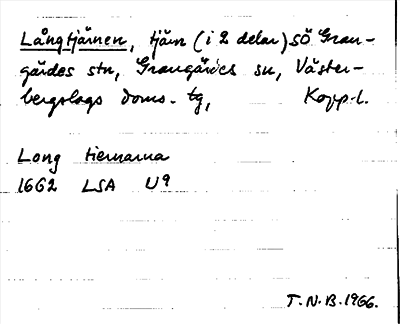 Långtjärnen, tjärn (i 2 delar) SÖ Gran-
gärdes stn, Grangärdes sn, Väster-
bergslags doms. tg, Kopp. l.
Long tiernarna
1662 LSA U9
T.N.B. 1966.